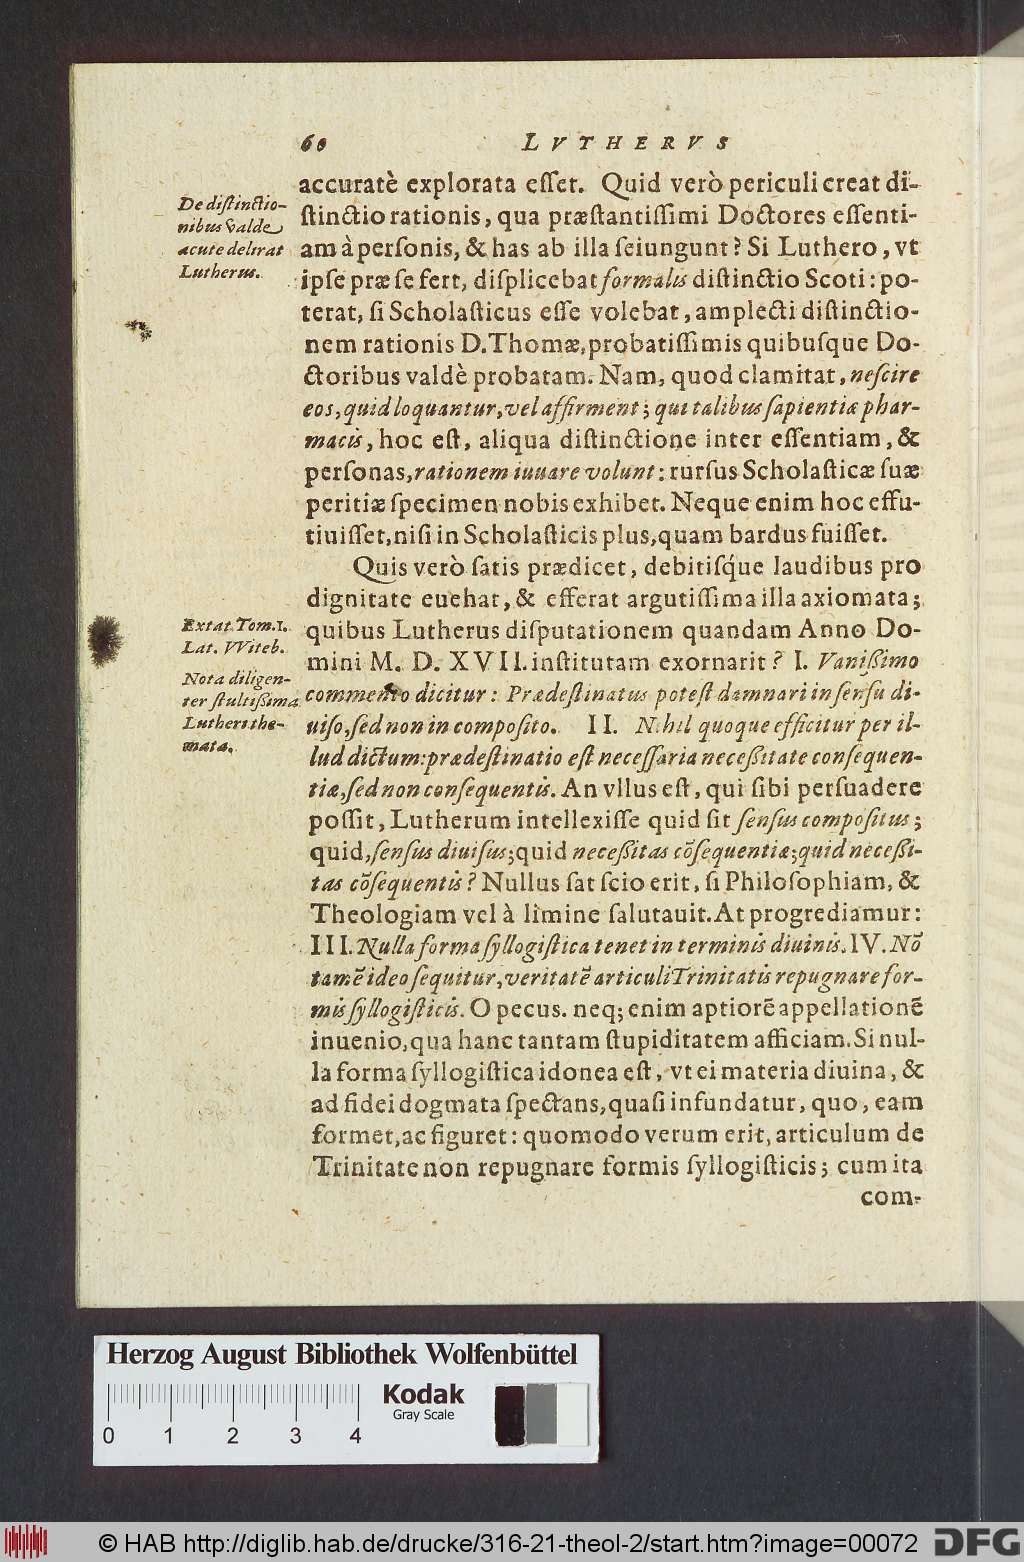 60 LVTHERVS
De distinctio-
nibus valde
acute delirat
Lutherus.
accuratè explorata esset. Quid verò periculi creat di-
stinctio rationis, qua præstantissimi Doctores essenti-
am à personis, & has ab illa seiungunt? Si Luthero, vt
ipse præ se fert, displicebat formalis distinctio Scoti: po-
terat, si Scholasticus esse volebat, amplecti distinctio-
nem rationis D. Thomæ, probatissimis quibusque Do-
ctoribus valdè probatam. Nam, quod clamitat, nescire
eos, quid loquantur, vel affirment; qui talibus sapientiæ phar-
macis, hoc est, aliqua distinctione inter essentiam, &
personas, rationem iuuare volunt: rursus Scholasticæ suæ
peritiæ specimen nobis exhibet. Neque enim hoc effu-
tiuisset, nisi in Scholasticis plus, quam bardus fuisset.
Quis verò satis prædicet, debitisq́ue laudibus pro
dignitate euehat, & efferat argutissima illa axiomata;
Extat Tom. 1.
Lat. VViteb.
Nota diligen-
ter stultissima
Lutheri the-
mata.
quibus Lutherus disputationem quandam Anno Do-
mini M. D. XVII. institutam exornarit? I. Vanißimo
commento dicitur: Prædestinatus potest damnari in sensu di-
uiso, sed non in composito. II. Nihil quoque efficitur per il-
lud dictum: prædestinatio est necessaria neceßitate consequen-
tiæ, sed non consequentis. An vllus est, qui sibi persuadere
possit, Lutherum intellexisse quid sit sensus compositus;
quid, sensus diuisus; quid neceßitas cōsequentiæ; quid neceßi-
tas cōsequentis? Nullus sat scio erit, si Philosophiam, &
Theologiam vel à limine salutauit. At progrediamur:
III. Nulla forma syllogistica tenet in terminis diuinis. IV. Nō
tamē ideo sequitur, veritatē articuli Trinitatis repugnare for-
mis syllogisticis. O pecus. neq; enim aptiorē appellationē
inuenio, qua hanc tantam stupiditatem afficiam. Si nul-
la forma syllogistica idonea est, vt ei materia diuina, &
ad fidei dogmata spectans, quasi infundatur, quo, eam
formet, ac figuret: quomodo verum erit, articulum de
Trinitate non repugnare formis syllogisticis; cum ita
com-
Herzog August Bibliothek Wolfenbüttel
Kodak
Gray Scale
0 1 2 3 4
© HAB http://diglib.hab.de/drucke/316-21-theol-2/start.htm?image=00072 DFG